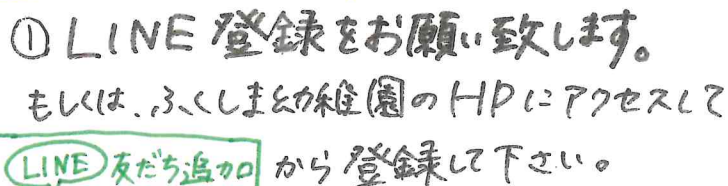 ① LINE 登録をお願い致します。
もしくは、ふくしま幼稚園のHPにアクセスして
LINE 友だち追加 から登録して下さい。